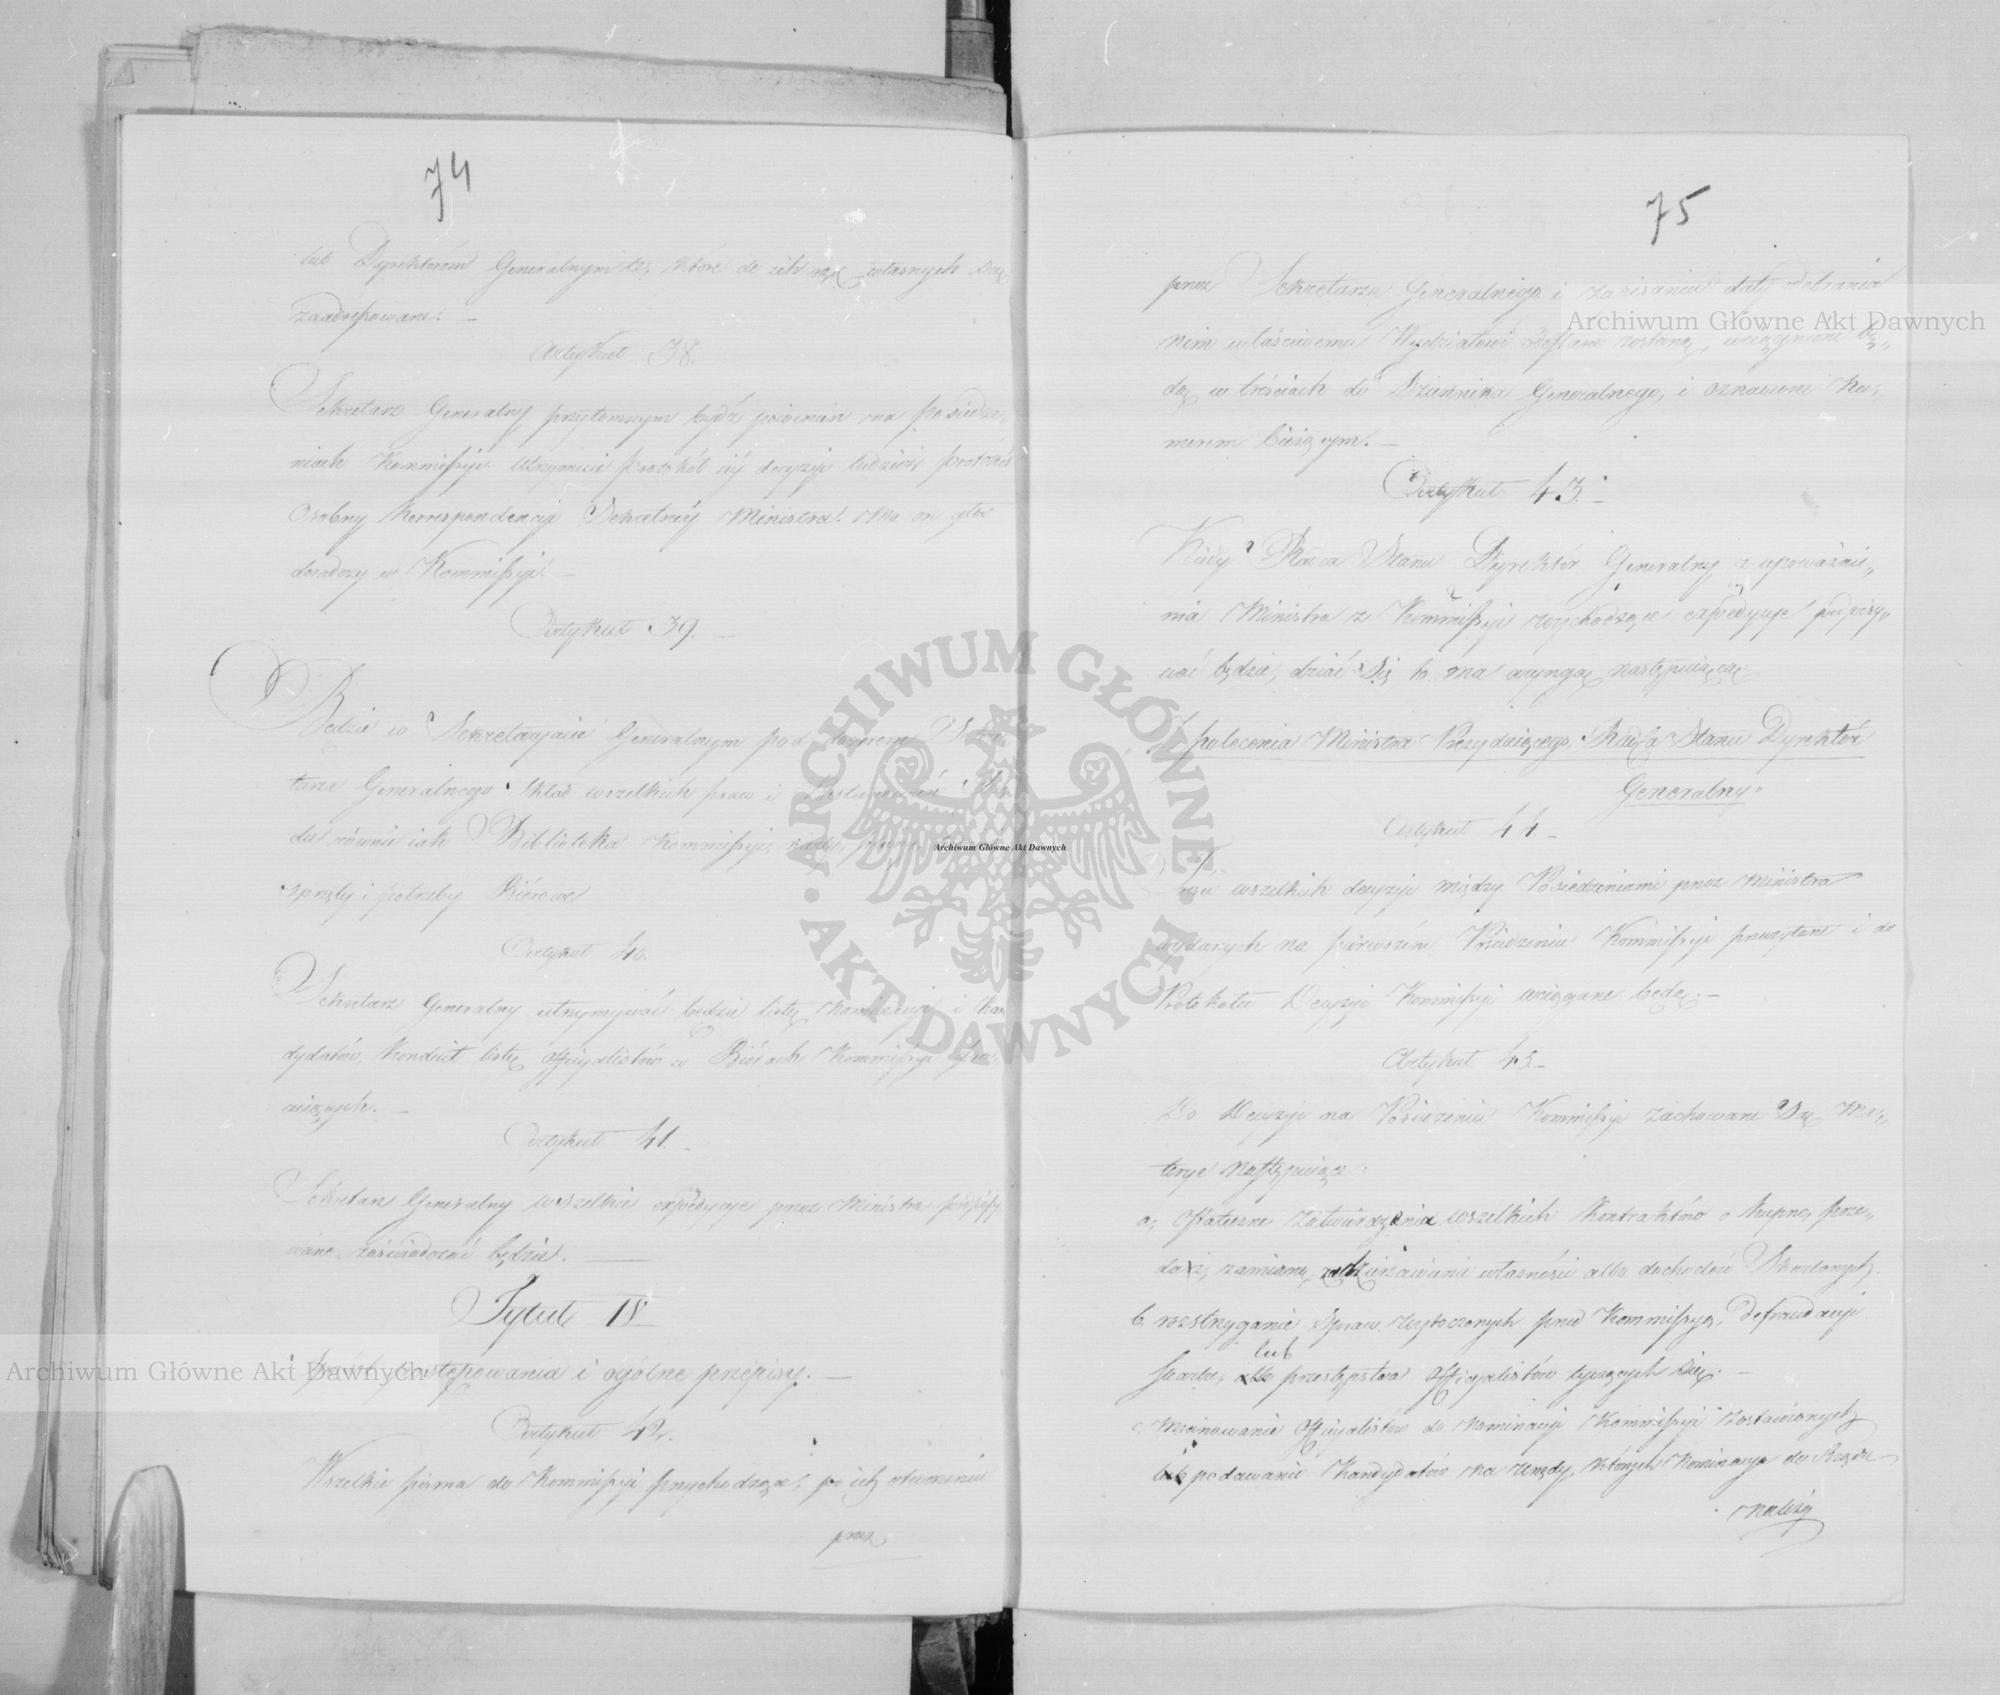 74
lub Dyrektorom Generalnym te, które do ich rąk własnych są
zaadresowane. —
Artykuł 38.
Sekretarz Generalny przytomnym bydź powinien na posiedze„
niach Kommissyi. Utrzymuie protokół iéy decyzyi tudzież protokół
osobny Korrespondencyi Sekretnéy Ministra. Ma on głos
doradczy w Kommissyi. —
Artykuł 39. —
Będzie w Sekretaryacie Generalnym pod dozorem Sekre
tarza Generalnego skład wszelkich praw i
du równie iak Biblioteka Kommissyi,
sprzęty i potrzeby Biórowe
Artykuł 40.
Sekretarz Generalny utrzymywać będzie listę nominacyi i kan
dydatów, Konduit listę officyalistów w Biórach Kommissyi prac„
uiących. —
Artykuł 41. —
Sekretarz Generalny wszelkie expedycye przez Ministra podpisy
wane zaświadczać będzie. —
Tytuł IV
postępowania i ogólne przepisy. —
Artykuł 42.
Wszelkie pisma do Kommissyi przychodzące, po ich otworzeniu
przez
75
przez Sekretarza Generalnego i zapisaniu daty odebrania
nim właściwemu Wydziałowi odesłane zostaną, wciągnione bę„
dą w treściach do Dziennika Generalnego, i oznaczone Nu„
merem bieżącym. —
Artykuł 43. —
Kiedy Radca Stanu Dyrektór Generalny z upoważnie„
nia Ministra z Kommissyi wychodzące expedycye podpisy„
wać będzie, dziać się to ma wyrazą następuiącą:
Z polecenia Ministra Prezyduiącego, Radca Stanu Dyrektór
Generalny„
Artykuł 44 —
Treść wszelkich decyzyi między Posiedzeniami przez Ministra
wydanych na pierwszém Posiedzeniu Kommissyi przeczytane i do
Protokółu Decyzyi Kommissyi wciągane będą. —
Artykuł 45. —
Do Decyzyi na Posiedzeniu Kommissyi zachowane są Ma„
terye następuiące:
a, ostateczne zatwierdzenia wszelkich Kontraktów o kupno, prze„
daż, zamianę, zadzierżawienie własności albo dochodów Skarbowych.
b. rozstrzyganie Spraw wytoczonych przed Kommissyą, defraudacyi
lub
Skarbu, albo przestępstwa officyalistów tyczących się. —
c mianowanie officyalistów do nominacyi Kommissyi zostawionych
lub podawanie Kandydatów na urzędy, których Nominacya do Rządu
należy
Archiwum Główne Akt Dawnych
Archiwum Główne Akt Dawnych
Archiwum Główne Akt Dawnych
ARCHIWUM GŁÓWNE AKT DAWNYCH